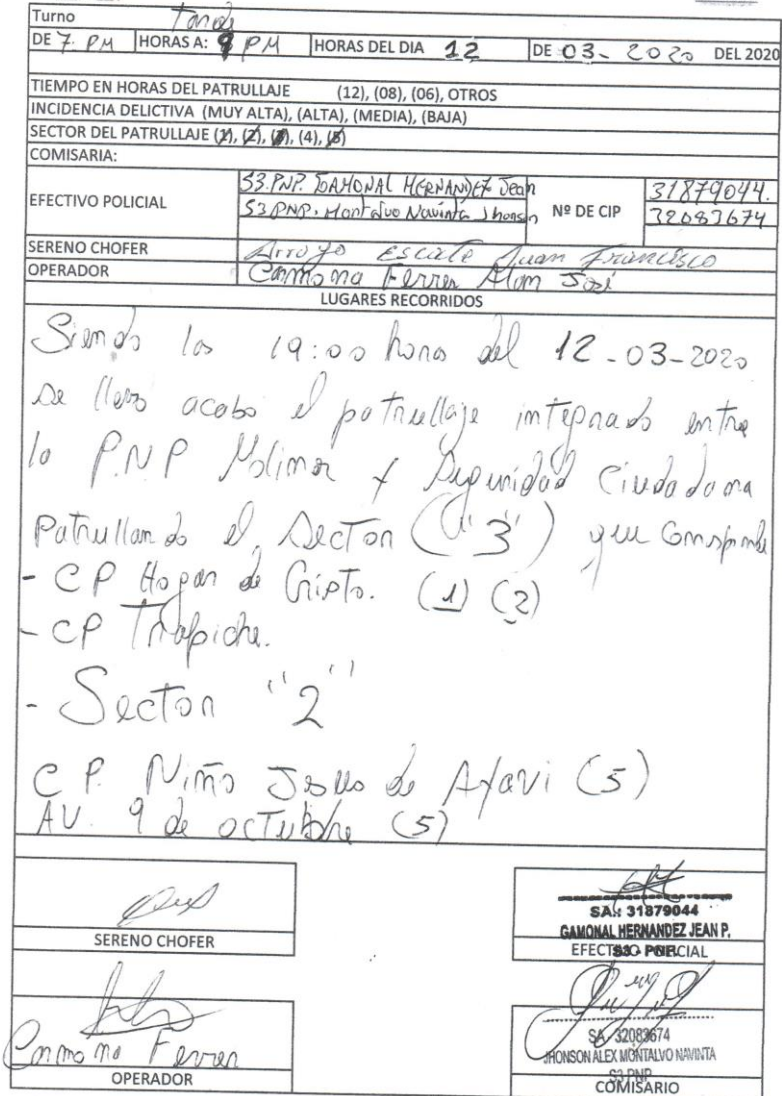 Turno Tarde
DE 7. PM HORAS A: 9 PM HORAS DEL DIA 12 DE 03- 2020 DEL 2020
TIEMPO EN HORAS DEL PATRULLAJE (12), (08), (06), OTROS
INCIDENCIA DELICTIVA (MUY ALTA), (ALTA), (MEDIA), (BAJA)
SECTOR DEL PATRULLAJE (1), (2), (3), (4), (5)
COMISARIA:
EFECTIVO POLICIAL
S3.PNP. GAMONAL HERNANDEZ Jean
S3.PNP. Montalvo Navinta Jhonson
Nº DE CIP
31879044.
32083674
SERENO CHOFER Arroyo Escate Juan Francisco
OPERADOR Carmona Ferrer Alan José
LUGARES RECORRIDOS
Siendo las 19:00 horas del 12-03-2020
se llevo acabo el patrullaje integrado entre
la P.N.P Molinos y Seguridad Ciudadana
Patrullando el Sector ("3") que Corresponde
- CP Hogar de Cristo. (1) (2)
- CP Trapiche.
- Sector "2"
C P. Niño Jesus de Ayavi (5)
AV. 9 de octubre (5)
SERENO CHOFER
SA: 31879044
GAMONAL HERNANDEZ JEAN P.
S3 - PNP
EFECTIVO POLICIAL
Carmona Ferrer
OPERADOR
SA. 32083674
JHONSON ALEX MONTALVO NAVINTA
S3 PNP
COMISARIO